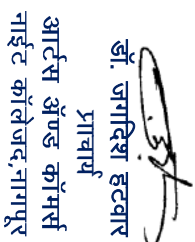 डॉ. जगदिश हटवार
प्राचार्य
आर्टस ॲण्ड कॉमर्स
नाईट कॉलेजद,नागपूर